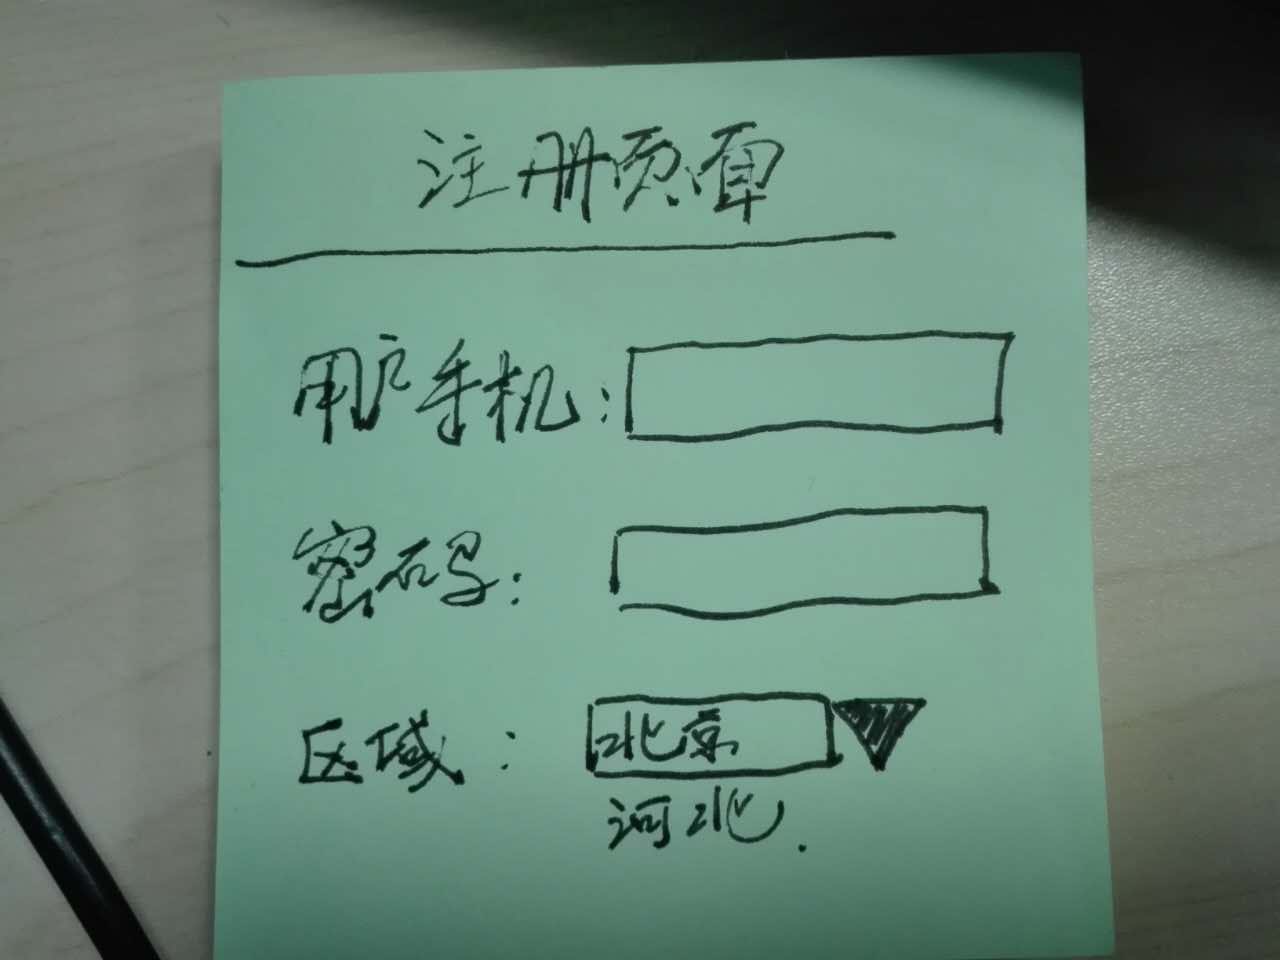 注册页面
用户手机:
密码:
区域: 北京
河北.